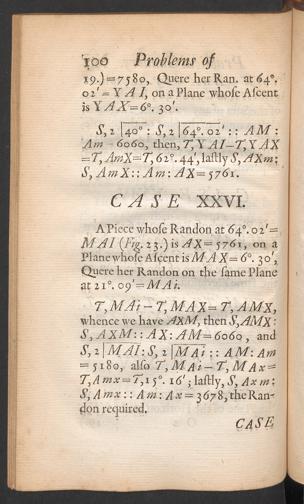 100 Problems of
19.)=7580, Quere her Ran. at 64°.
02'=YAI, on a Plane whose Ascent
is YAX=6°. 30'.
S, 2 |40° : S, 2 |64°. 02' :: AM :
Am=6060, then, T, YAI−T, YAX
=T, AmX=T, 62°. 44', lastly S, AXm:
S, AmX :: Am : AX=5761.
CASE XXVI.
A Piece whose Randon at 64°. 02'=
MAI (Fig. 23.) is AX=5761, on a
Plane whose Ascent is MAX=6°. 30',
Quere her Randon on the same Plane
at 21°. 09'=MAi.
T, MAi−T, MAX=T, AMX,
whence we have AXM, then S, AMX:
S, AXM :: AX : AM=6060, and
S, 2 |MAI : S, 2 |MAi :: AM : Am
=5180, also T, MAi−T, MAx=
T, Amx=T, 15°. 16'; lastly, S, Axm:
S, Amx :: Am : Ax=3678, the Ran-
don required.
CASE